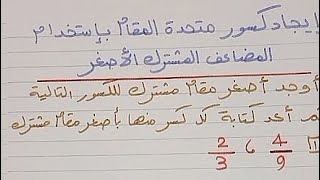 إيجاد كسور متحدة المقام بإستخدام
المضاعف المشترك الأصغر
أوجد أصغر مقام مشترك للكسور التالية
ثم أعد كتابة كل كسر منها بأصغر مقام مشترك
1 4/9 ، 2/3